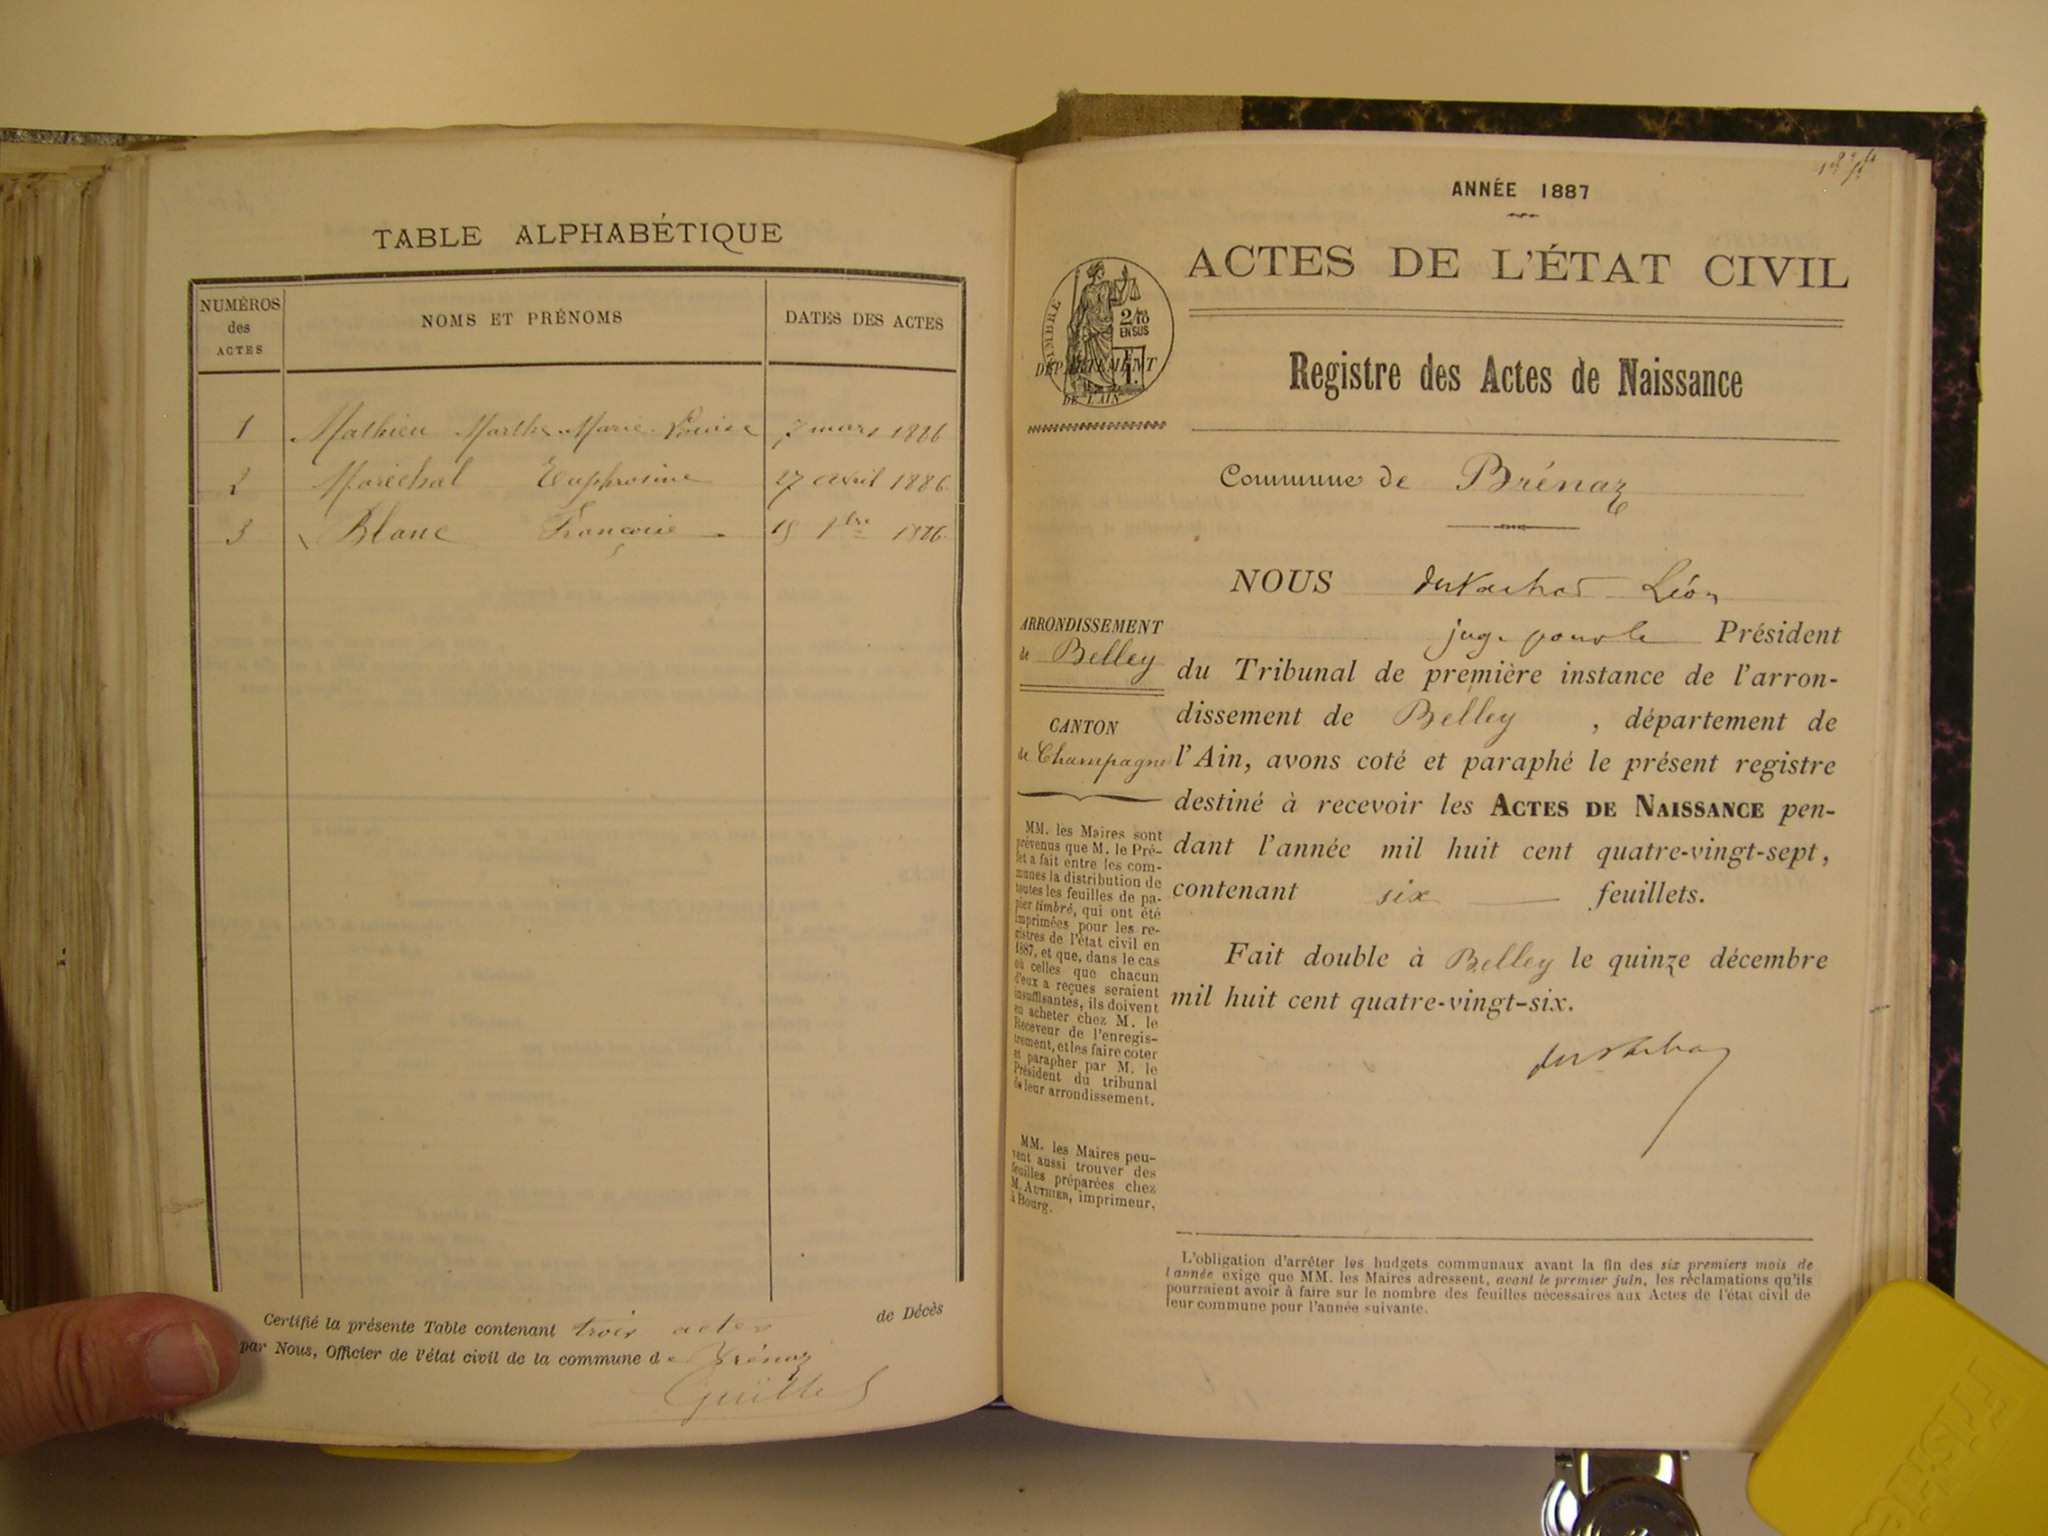 TABLE ALPHABÉTIQUE
NUMÉROS des ACTES
NOMS ET PRÉNOMS
DATES DES ACTES
1 Mathieu Marthe Marie Louise 7 mars 1886
2 Maréchal Euphrosine 27 avril 1886
3 Blanc Françoise 1886
Certifié la présente Table contenant trois actes de Décès
par Nous, Officier de l'état civil de la commune de Brénaz
ANNÉE 1887
ACTES DE L'ÉTAT CIVIL
TIMBRE
2/10
EN SUS
DÉPARTEMENT
DE L'AIN
Registre des Actes de Naissance
Commune de Brénaz
ARRONDISSEMENT
de Belley
CANTON
de Champagne
MM. les Maires sont
prévenus que M. le Pré-
fet a fait entre les com-
munes la distribution de
toutes les feuilles de pa-
pier timbré, qui ont été
imprimées pour les re-
gistres de l'état civil en
1887, et que, dans le cas
où celles que chacun
d'eux a reçues seraient
insuffisantes, ils doivent
en acheter chez M. le
Receveur de l'enregis-
trement, et les faire coter
et parapher par M. le
Président du tribunal
de leur arrondissement.
MM. les Maires peu-
vent aussi trouver des
feuilles préparées chez
M. AUTHIER, imprimeur,
à Bourg.
NOUS Léon
juge pour le Président
du Tribunal de première instance de l'arron-
dissement de Belley, département de
l'Ain, avons coté et paraphé le présent registre
destiné à recevoir les ACTES DE NAISSANCE pen-
dant l'année mil huit cent quatre-vingt-sept,
contenant six feuillets.
Fait double à Belley le quinze décembre
mil huit cent quatre-vingt-six.
L'obligation d'arrêter les budgets communaux avant la fin des six premiers mois de
l'année exige que MM. les Maires adressent, avant le premier juin, les réclamations qu'ils
pourraient avoir à faire sur le nombre des feuilles nécessaires aux Actes de l'état civil de
leur commune pour l'année suivante.